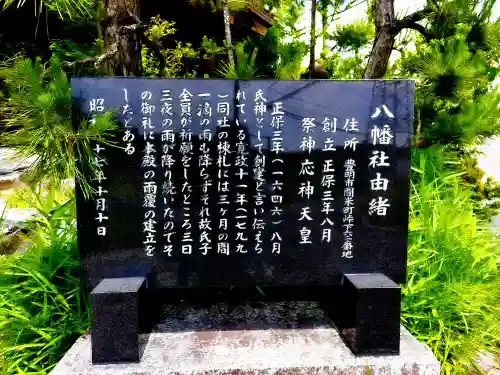 八幡社由緒
住所 豊明市間米町峠下六番地
創立 正保三年八月
祭神 応神天皇
正保三年(一六四六)八月
氏神として創建と言い伝えら
れている寛政十一年(一七九九
)同社の棟札には三ヶ月の間
一滴の雨も降らずそれ故氏子
全員が祈願をしたところ三日
三夜の雨が降り続いたのでそ
の御礼に本殿の雨覆の建立を
した
とある
昭和
十七年十月十日